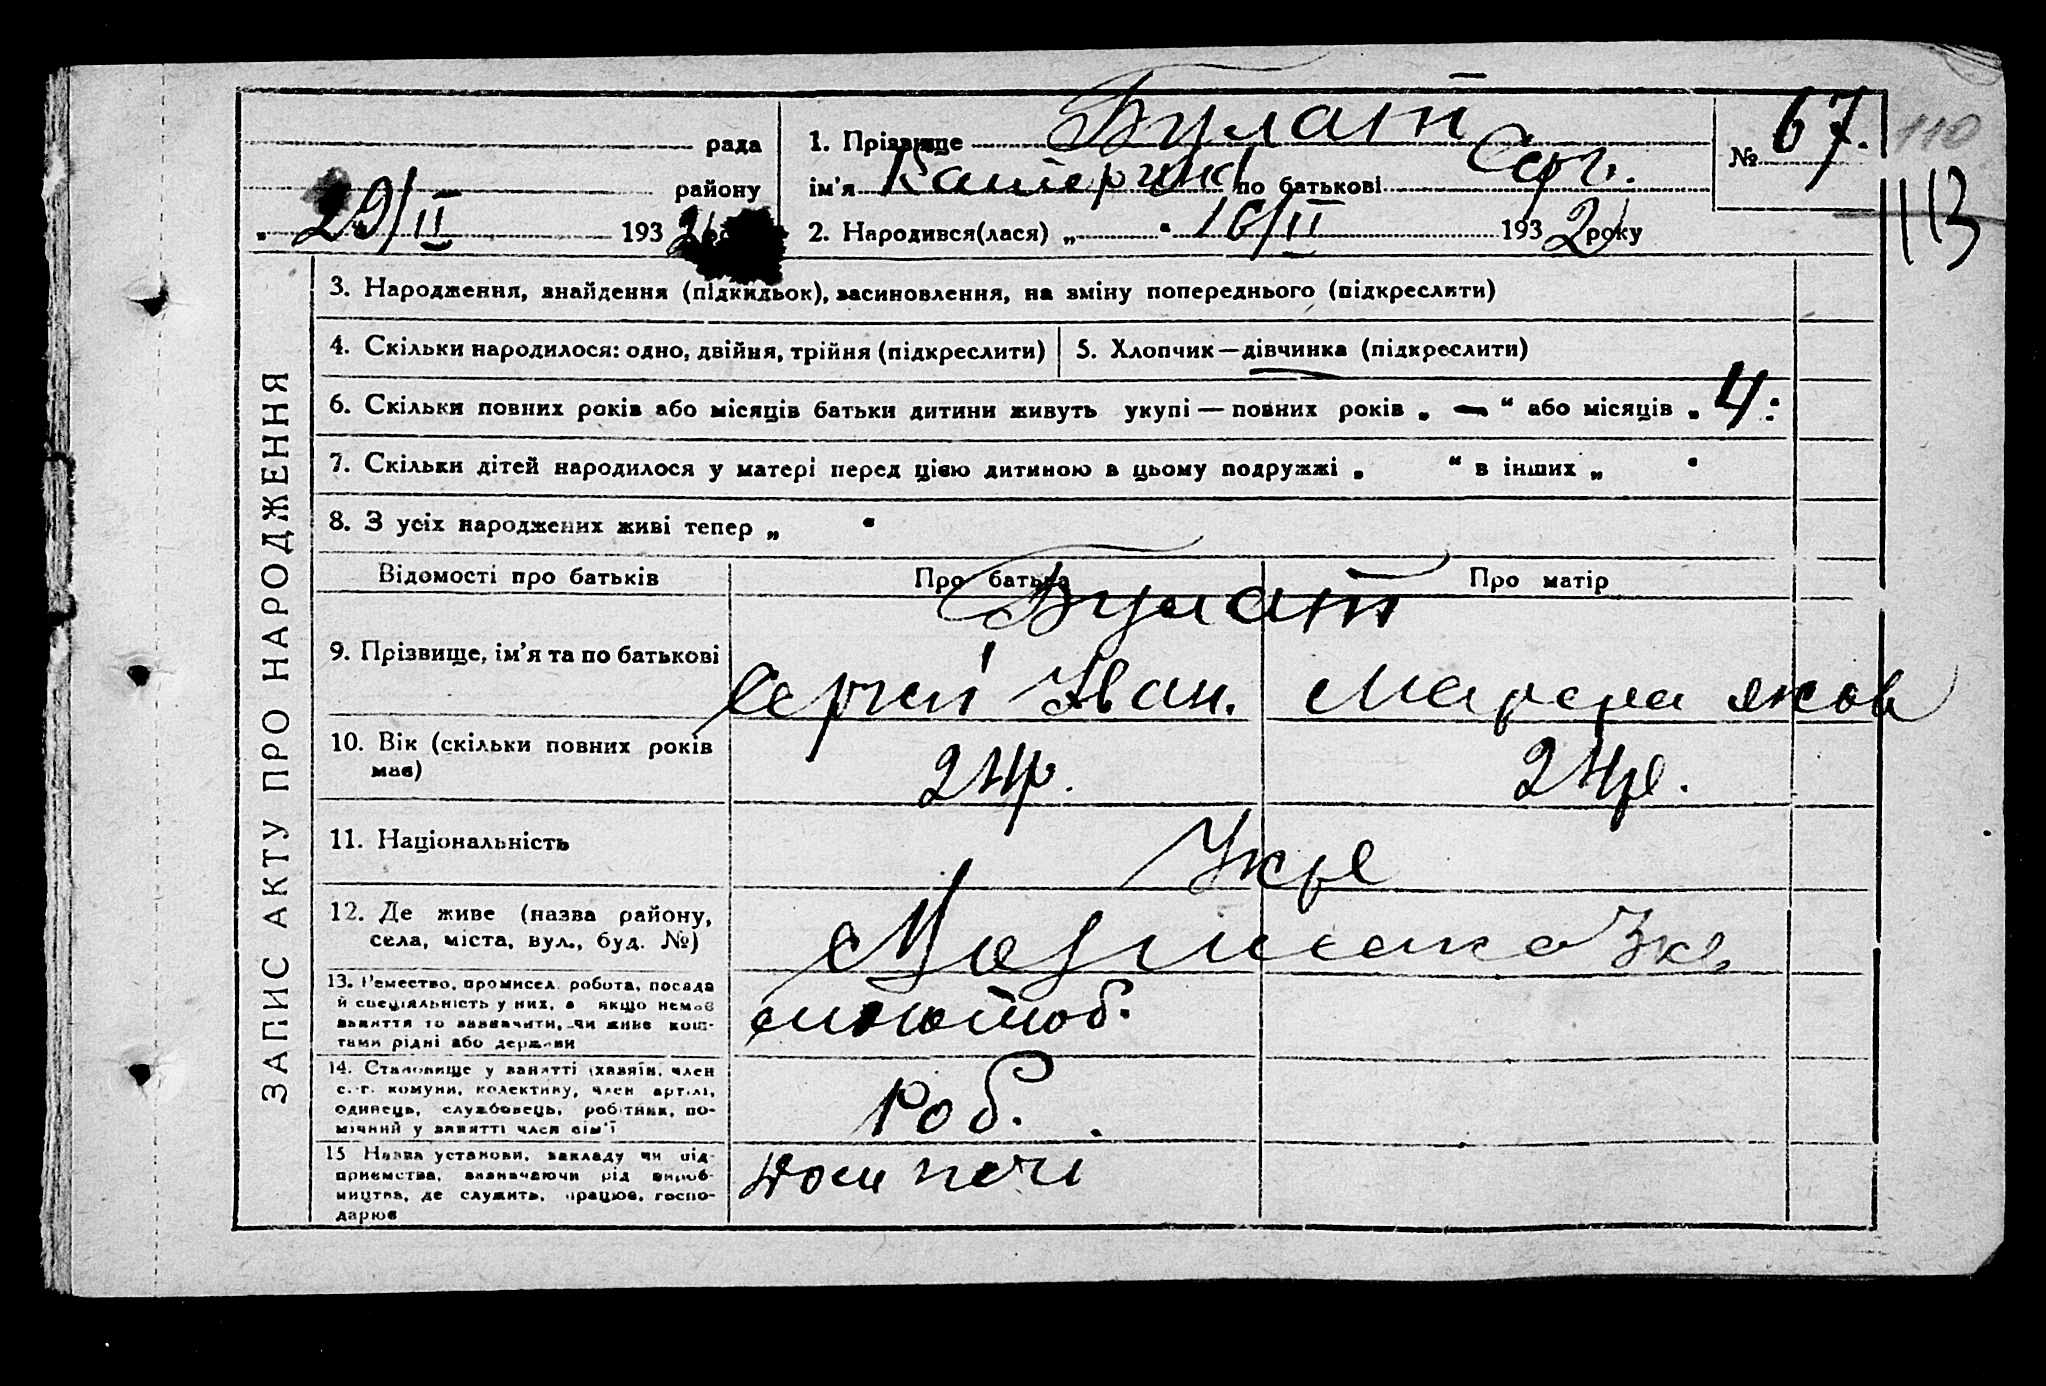 рада
району
„ 29/II 1932
1. Прізвище Булат
ім'я Катерина по батькові Серг.
2. Народився(лася) „ " 16/II 1932 року
№ 67.
110
113
ЗАПИС АКТУ ПРО НАРОДЖЕННЯ
3. Народження, знайдення (підкидьок), засиновлення, на зміну попереднього (підкреслити)
4. Скільки народилося: одно, двійня, трійня (підкреслити)
5. Хлопчик—дівчинка (підкреслити)
6. Скільки повних років або місяців батьки дитини живуть укупі — повних років „ — “ або місяців „ 4:
7. Скільки дітей народилося у матері перед цією дитиною в цьому подружжі „ “ в інших „ “
8. З усіх народжених живі тепер „ “
Відомості про батьків
Про батька
Про матір
9. Прізвище, ім'я та по батькові
Булат
Сергій Іван.
Яков
10. Вік (скільки повних років має)
24р.
11. Національність
Укр
12. Де живе (назва району,
села, міста, вул., буд. №)
13. Ремество, промисел, робота, посада
й спеціяльність у них, а якщо немає
заняття то зазначити, чи живе кош-
тами рідні або держави
14. Становище у занятті (хазяїн, член
с.-г. комуни, колективу, член артілі,
одинець, службовець, робітник, по-
мічний у занятті член сім'ї
Роб.
15 Назва установи, закладу чи під-
приємства, зазначаючи рід вироб-
ництва, де служить, працює, госпо-
дарює
печі